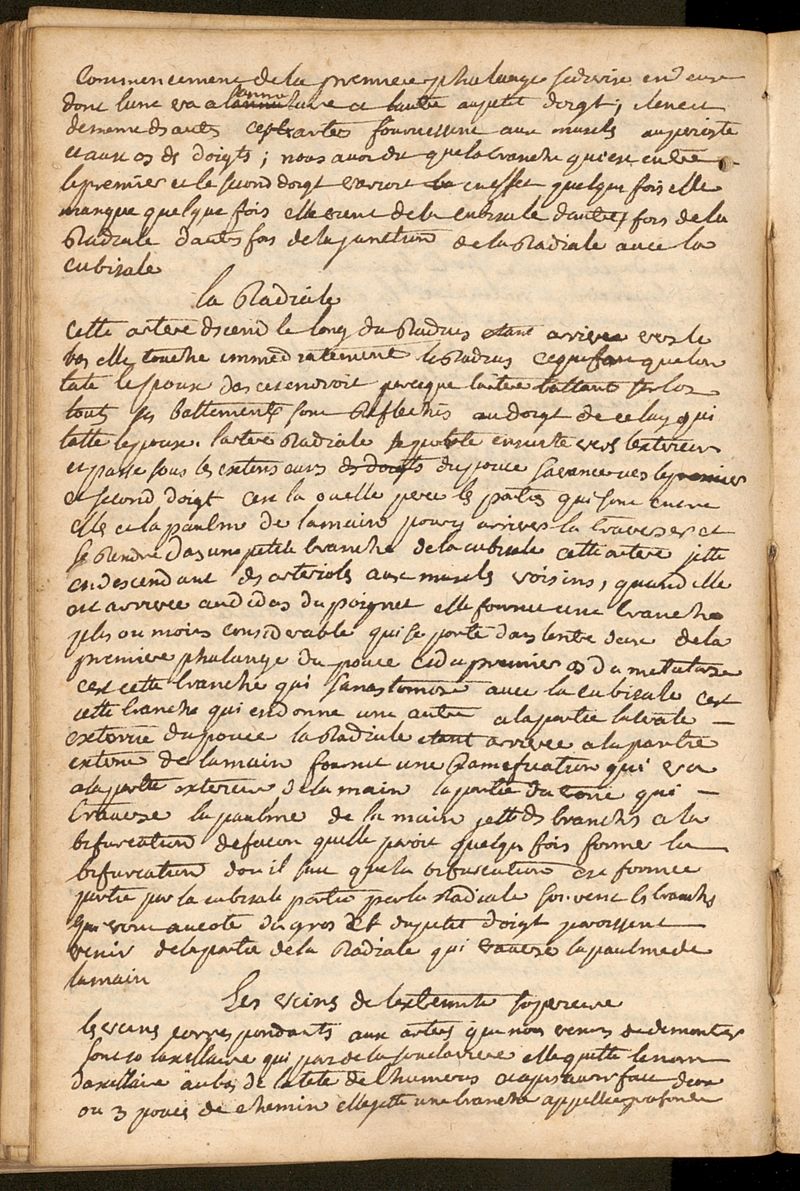 commencement de la premiere phalange se divise en deux
dont lune va a lannulaire et lautre au petit doigt; il en est
de meme des autres ces arteres fournissent aux muscles au perioste
et aux os des doigts; nous avons dit que la branche qui est entre
le premier et le second doigt varioit en effet quelque fois elle
manque quelque fois elle vient de la cubitale dautre fois de la
Radiale dautres fois de la jonction de la Radiale avec la
cubitale
la Radiale
cette artere descend le long du Radius etant arrivee vers le
bas elle touche immediatement le Radius ce qui fait que lon
tate le pouls dans cet endroit parceque lartere battant sur los
touts ses battements sont Reflechis au doigt de celuy qui
tatte le pouls. lartere Radiale se porte ensuite vers lexterieur
et passe sous les extenseurs du pouce savance vers le premier
et second doigt cest la ou elle perce les parties qui sont entre
elle et la paulme de la main pour y arriver la traverser et
se Rendre dans une petite branche de la cubitale cette artere jette
en descendant des arterioles aux muscles voisins, quand elle
est arrivee au dedans du poignet elle fournit une branche
plus ou moins considerable qui se porte dans lentre deux de la
premiere phalange du pouce et du premier os du metatarse
cest cette branche qui sanastomose avec la cubitale cest
cette branche qui en donne une autre a la partie laterale
externe du pouce la Radiale etant arrivee a la partie
externe de la main fournit une Ramification qui va
a la partie exterieur de la main la partie du qui
traverse la paulme de la main jette des branches a la
bifurcation de facon quelle paroit quelque fois former la
bifurcation dou il suit que la bifurcation est formee
partie par la cubitale partie par la Radiale souvent les branches
qui vont au coté du gros et du petit doigt paroissent
venir de la partie de la Radiale qui traverse la paulme de
la main
Les veines de lextremite superieure
les veines correspondants aux arteres que nous venons de demontrer
sont laxillaire qui part de la souclaviere elle quitte le nom
daxillaire au bas de la tete de lhumerus et apres avoir fait deux
ou 3 pouces de chemin elle jette une branche appellée profonde